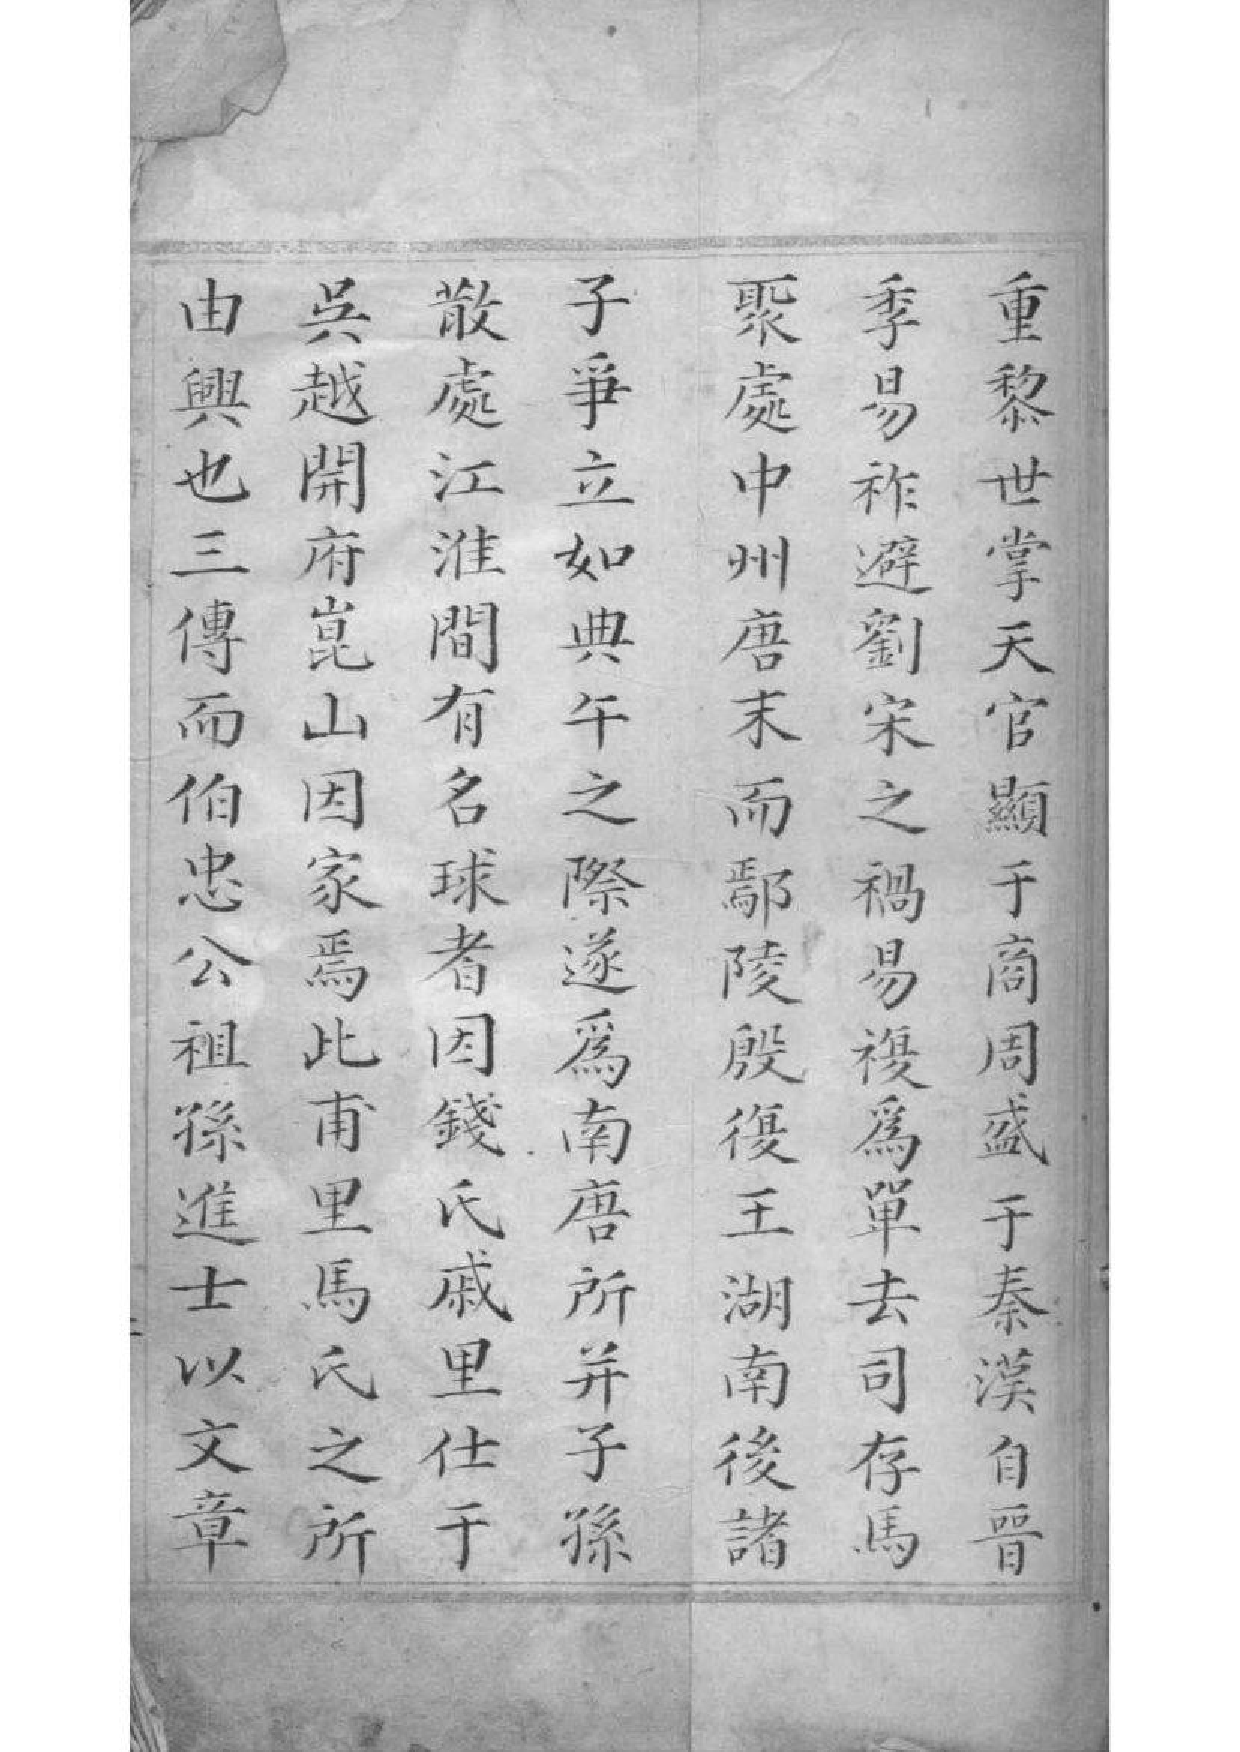 重黎世掌天官顯于商周盛于秦漢自晉
季易祚避劉宋之禍易複爲單去司存馬
聚處中州唐末而鄢陵殷復王湖南後諸
子爭立如典午之際遂爲南唐所并子孫
散處江淮間有名球者因錢氏戚里仕于
吳越開府崑山因家焉此甫里馬氏之所
由興也三傳而伯忠公祖孫進士以文章